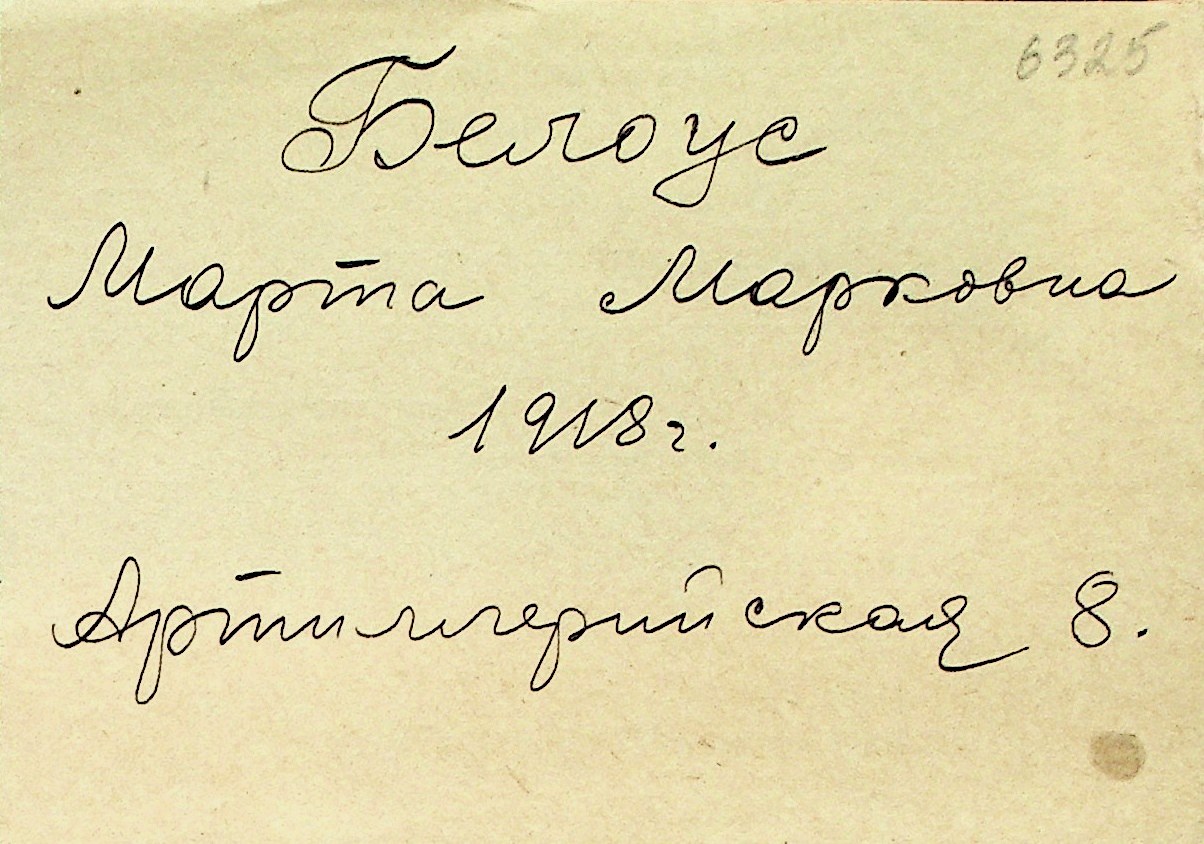 6325
Белоус
Марта Марковна
1918г.
Артиллерийская 8.